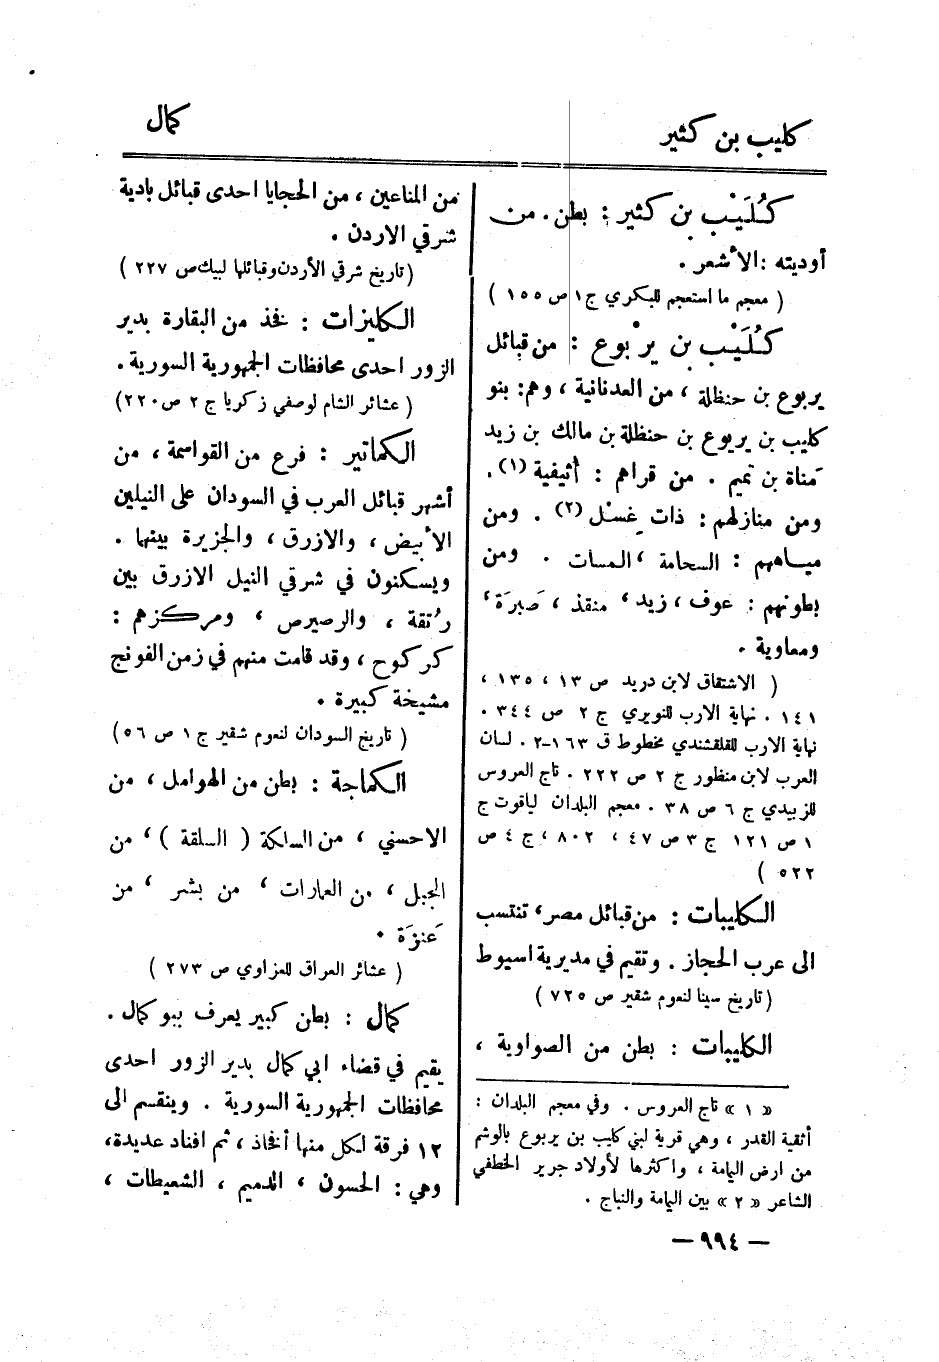 كليب بن كثير
كمال
كُلَيْب بن كثير : بطن . من
أوديته : الأشعر .
( معجم ما استعجم للبكري ج ١ ص ١٥٥ )
كُلَيْب بن يربوع : من قبائل
يربوع بن حنظلة ، من العدنانية ، وهم : بنو
كليب بن يربوع بن حنظلة بن مالك بن زيد
مناة بن تميم . من قراهم : أثيفية (١) .
ومن منازلهم : ذات غسل (٢) . ومن
مياههم : السحامة ، المسات . ومن
بطونهم : عوف ، زيد ، منقذ ، صَبِرَة ،
ومعاوية .
( الاشتقاق لابن دريد ص ١٣ ، ١٣٥ ،
١٤١ . نهاية الارب للنويري ج ٢ ص ٣٤٤ .
نهاية الارب للقلقشندي مخطوط ق ١٦٣-٢ . لسان
العرب لابن منظور ج ٢ ص ٢٢٢ . تاج العروس
للزبيدي ج ٦ ص ٣٨ . معجم البلدان لياقوت ج
١ ص ١٢١ ج ٣ ص ٤٧ ، ٨٠٢ ، ج ٤ ص
٥٢٢ )
الكليبات : من قبائل مصر ، تنتسب
الى عرب الحجاز . وتقيم في مديرية اسيوط
( تاريخ سينا لنعوم شقير ص ٧٢٥ )
الكليبات : بطن من الصواوية ،
« ١ » تاج العروس . وفي معجم البلدان :
أثقية القدر ، وهي قرية لبني كليب بن يربوع بالوشم
من ارض اليمامة ، واكثرها لأولاد جرير الخطفي
الشاعر « ٢ » بين اليمامة والنباج .
من المناعين ، من الحجايا احدى قبائل بادية
شرقي الاردن .
( تاريخ شرقي الأردن وقبائلها لبيك ص ٢٢٧ )
الكليزات : فخذ من البقارة بدير
الزور احدى محافظات الجمهورية السورية .
( عشائر الشام لوصفي زكريا ج ٢ ص ٢٢٠ )
الكماتير : فرع من القواسمة ، من
أشهر قبائل العرب في السودان على النيلين
الأبيض ، والازرق ، والجزيرة بينهما .
ويسكنون في شرقي النيل الازرق بين
رُنقة ، والرصيرص ، ومركزهم :
كركوح ، وقد قامت منهم في زمن الفونج
مشيخة كبيرة .
( تاريخ السودان لنعوم شقير ج ١ ص ٥٦ )
الكماجة : بطن من الهوامل ، من
الاحسني ، من السلكة ( السلقة ) ، من
الجبل ، من العمارات ، من بشر ، من
عَنَزَة .
( عشائر العراق للعزاوي ص ٢٧٣ )
كمال : بطن كبير يعرف ببو كمال .
يقيم في قضاء ابي كمال بدير الزور احدى
محافظات الجمهورية السورية . وينقسم الى
١٢ فرقة لكل منها أفخاذ ، ثم افناد عديدة ،
وهي : الحسون ، الدميم ، الشعيطات ،
— ٩٩٤ —